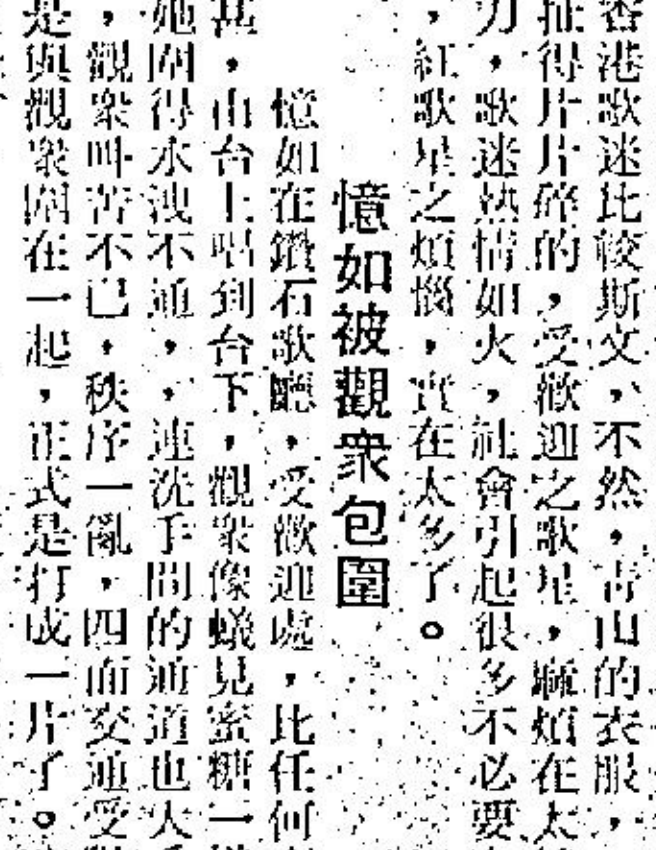 香港歌迷比較斯文，不然，青山的衣服，
扯得片片碎的，受歡迎之歌星，麻煩在太
力，歌迷熱情如火，社會引起很多不必要
，紅歌星之煩惱，實在太多了。
憶如被觀衆包圍
憶如在鑽石歌廳，受歡迎處，比任何
甚，由台上唱到台下，觀衆像蟻見蜜糖一
她圍得水洩不通，，連洗手間的通道也人
，觀衆叫苦不已，秩序一亂，四面交通受
是與觀衆圍在一起，正式是打成一片了。